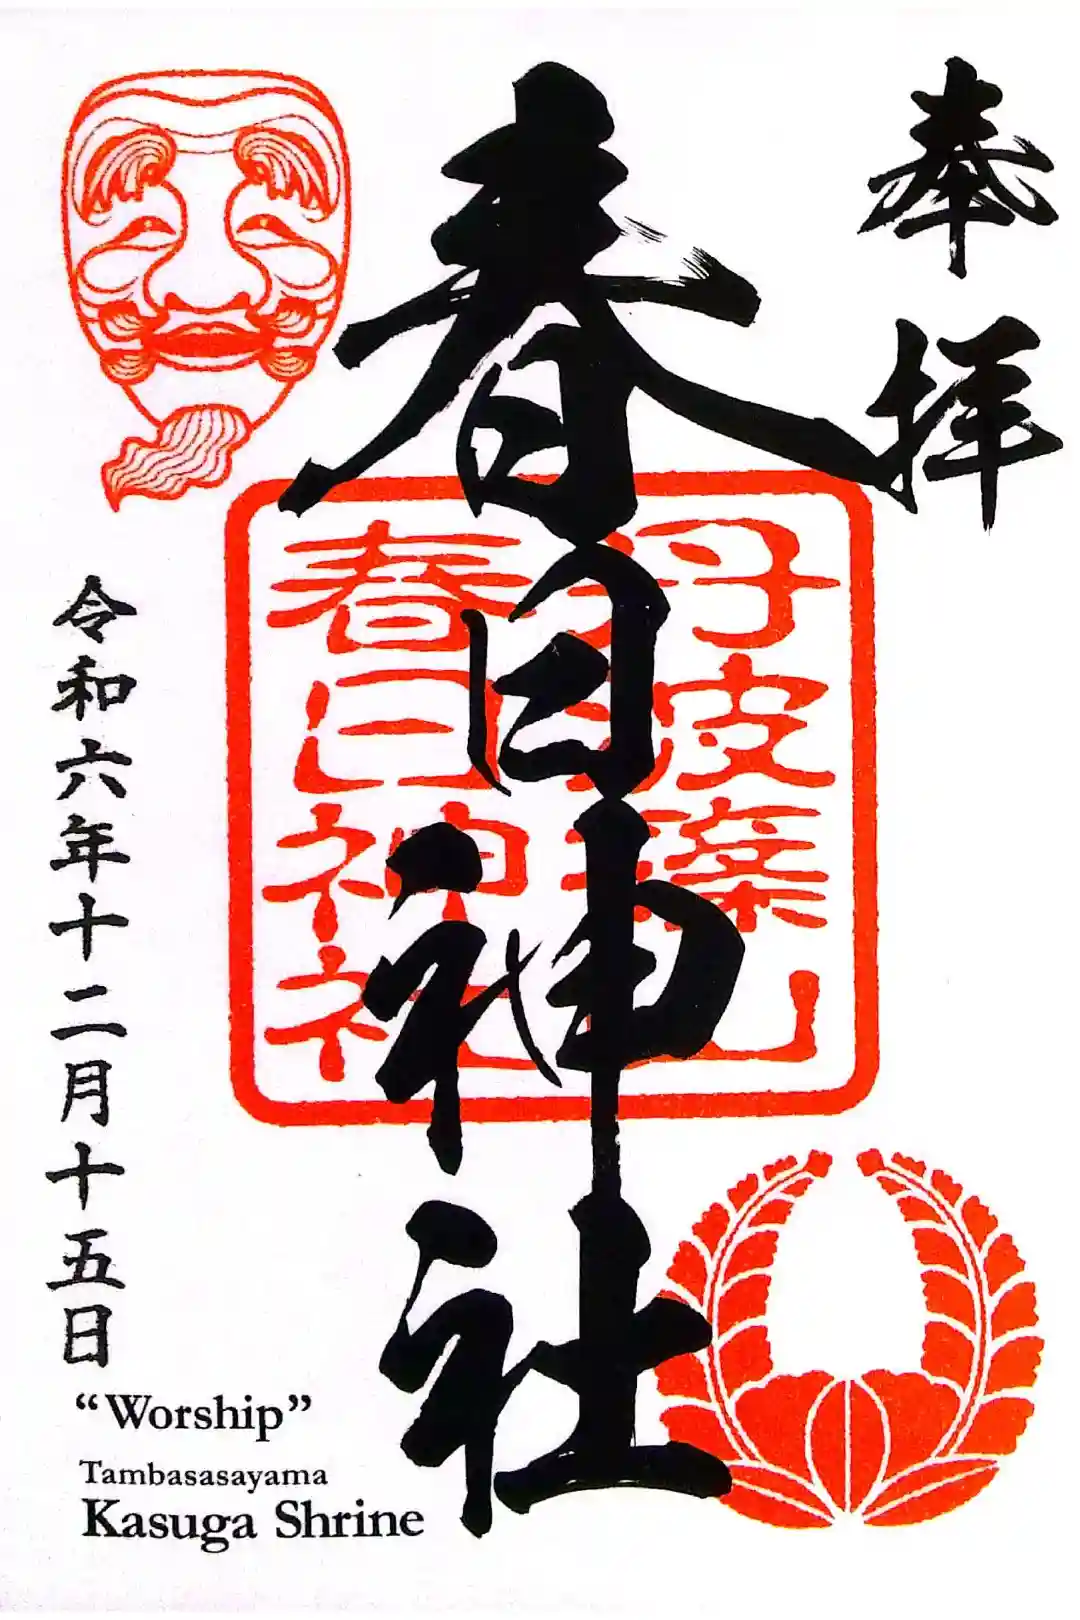 奉拝
春日神社
丹波篠山
春日神社
令和六年十二月十五日
“Worship”
Tambasasayama
Kasuga Shrine